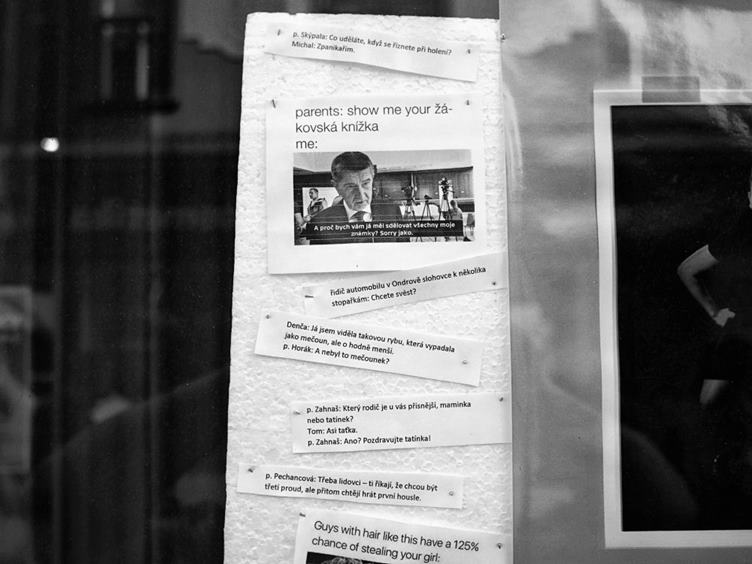 p. Skýpala: Co uděláte, když se říznete při holení?
Michal: Zpanikařím.
parents: show me your žá-
kovská knížka
me:
A proč bych vám já měl sdělovat všechny moje
známky? Sorry jako.
řidič automobilu v Ondrově slohovce k několika
stopařkám: Chcete svést?
Denča: Já jsem viděla takovou rybu, která vypadala
jako mečoun, ale o hodně menší.
p. Horák: A nebyl to mečounek?
p. Zahnaš: Který rodič je u vás přísnější, maminka
nebo tatínek?
Tom: Asi taťka.
p. Zahnaš: Ano? Pozdravujte tatínka!
p. Pechancová: Třeba lidovci – ti říkají, že chcou být
třetí proud, ale přitom chtějí hrát první housle.
Guys with hair like this have a 125%
chance of stealing your girl: